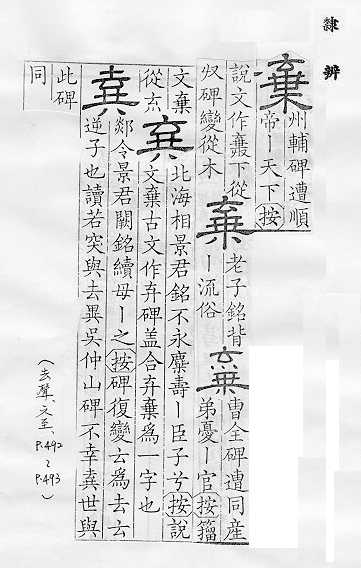 隸辨
棄
州輔碑遭順
帝丨天下按
說文作𠅤下從
𠬞碑變從木
棄
老子銘背
丨流俗
棄
曹全碑遭同産
弟憂丨官按籀
文棄
從𠫓
棄
北海相景君銘不永麋壽丨臣子兮按說
文棄古文作弃碑盖合弃棄爲一字也
棄
郯令景君闕銘續母丨之按碑復變𠫓爲去𠫓
逆子也讀若突與去異吳仲山碑不幸棄世與
此碑
同
(去聲、六至、
P.492
~
P.493)